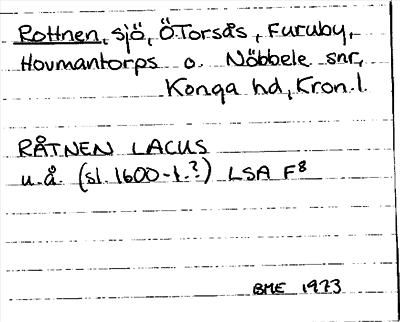 Rottnen, sjö, Ö.Torsås, Furuby,
Hovmantorps o. Nöbbele snr,
Konga hd, Kron.l.
RÅTNEN LACUS
u.å. (sl. 1600-t.?) LSA F8
BME 1973